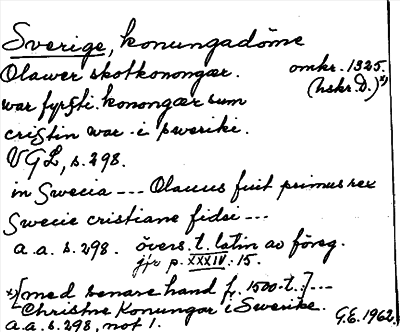 Sverige, konungadöme
Olawer skotkonongær. omkr. 1325.
(hskr. D.) x)
war fyrsti konongær sum
cristin war i swerike.
VGL, s. 298.
in Swecia --- Olauus fuit primus rex
Swecie cristiane fidei ---
a.a. s. 298. övers. t. latin av föreg.
jfr p. XXXIV. 15.
x) [med senare hand fr. 1500-t.: ---
Christne Konungar i Swerike.
a.a. s. 298, not 1. G.E. 1962.